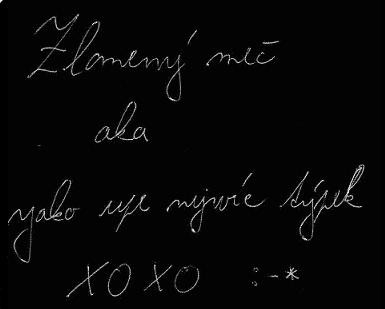 Zlomený meč
aka
yako upe nejvíc týpek
XOXO :-*